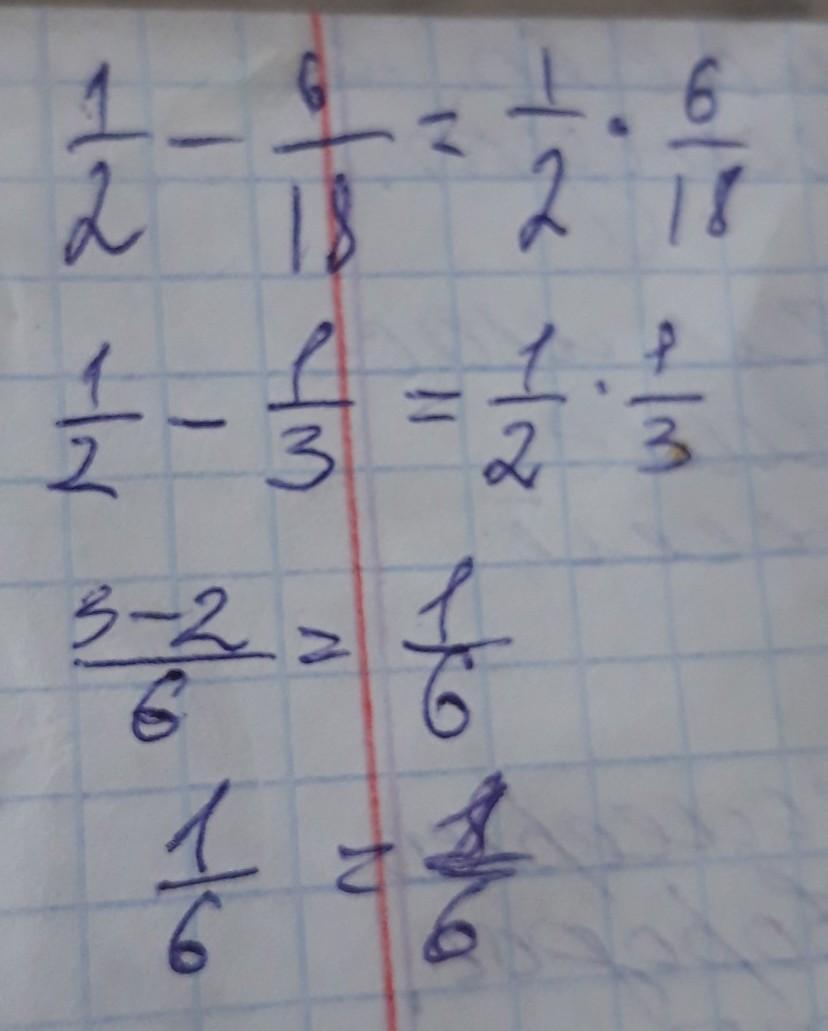 1/2 - 6/18 = 1/2 · 6/18
1/2 - 1/3 = 1/2 · 1/3
3-2/6 = 1/6
1/6 = 1/6